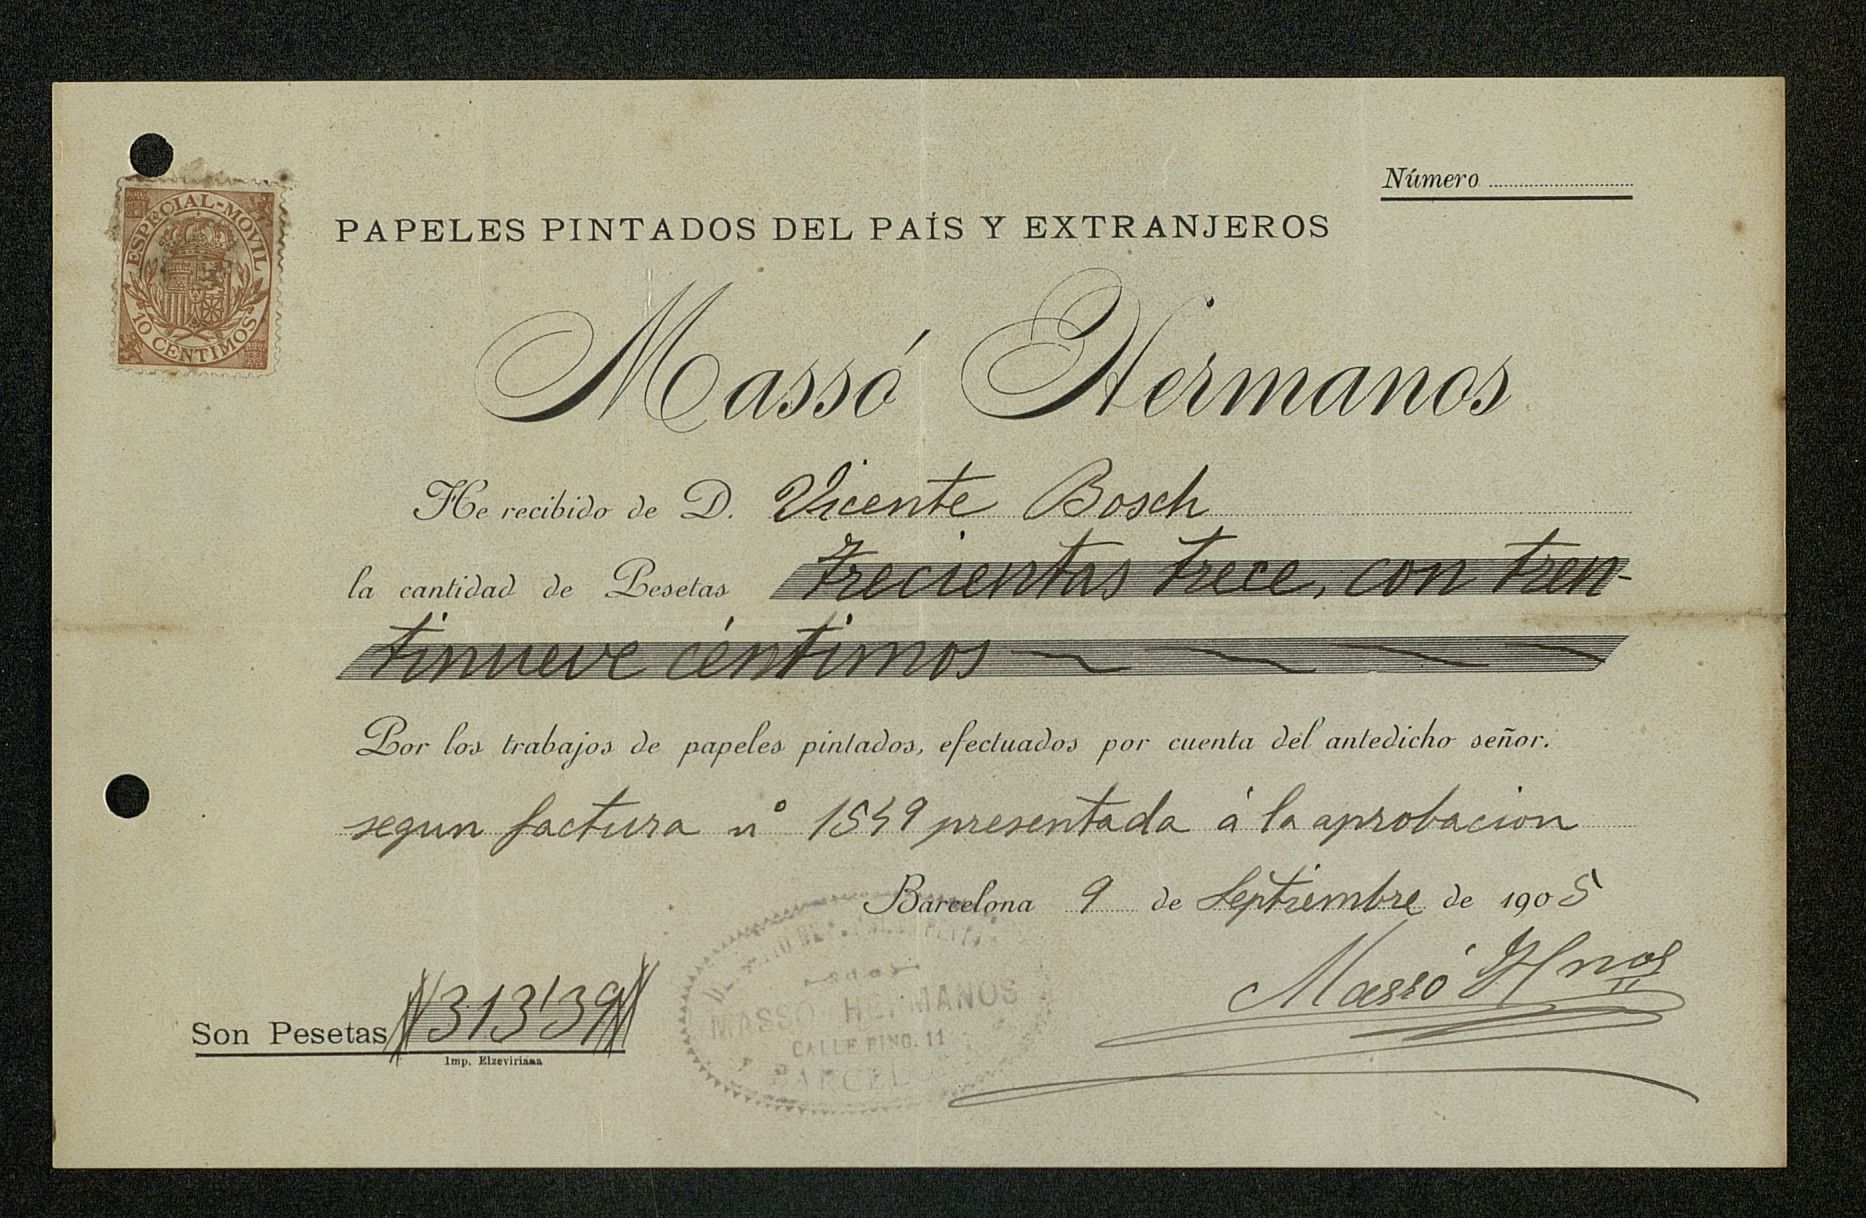 Número
ESPECIAL-MOVIL
10 CENTIMOS
PAPELES PINTADOS DEL PAÍS Y EXTRANJEROS
Massó Hermanos
He recibido de D. Vicente Bosch
la cantidad de Pesetas Trecientas trece, con tren-
tinueve céntimos
Por los trabajos de papeles pintados, efectuados por cuenta del antedicho señor.
segun factura nº 1549 presentada á la aprobacion
Barcelona 9 de Septiembre de 1905
Massó Hnos
Son Pesetas 313'39
Imp. Elzeviriana
MASSO HERMANOS
CALLE PINO. 11